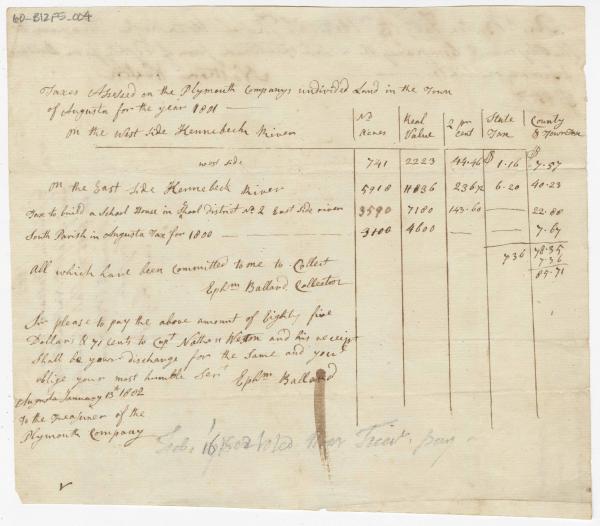 60-B12F5-004
Taxes Assesed on the Plymouth Companys undivided Land in the Town
of Augusta for the year 1801 —
on the West Side Kennebeck River
No Acres Real Value 2 pr cent State Tax County & Town Tax
west side 741 2223 44.46 $ 1.16 $ 7.57
on the East Side Kennebeck River 5918 11836 236.72 6.20 40.23
Tax to build a School House in School District No 2 East Side river 3590 7180 143.60 — 22.80
South Parish in Augusta Tax for 1800 — 3100 4600 — — 7.67
7.36 78.35
7.36
85.71
All which have been committed to me to Collect
Ephm Ballard Collector
Sir please to pay the above amount of Eighty five
Dollars & 71 cents to Capt Nathan Weston and his receipt
Shall be your discharge for the same and you'l
oblige your most humble Servt
Ephm Ballard
Augusta January 13th 1802
To the Treasurer of the
Plymouth Company
Feb. 16 1802 Voted Treasr. pay